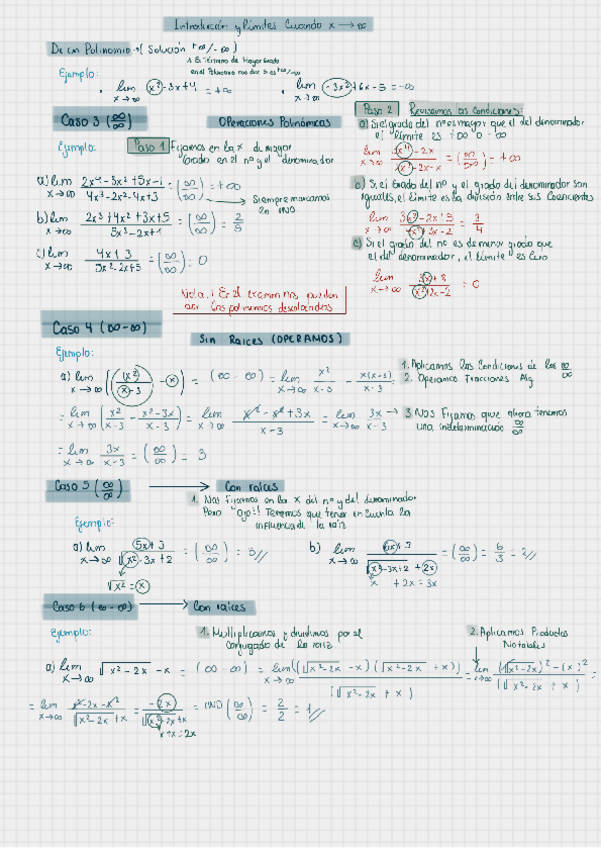 Introducción y límites Cuando x → ∞
De un Polinomio → ( Solución +∞/-∞ )
Ejemplo:
lim x→∞ x² - 3x + 4 = +∞
lim x→∞ -3x² + 6x - 5 = -∞
Caso 3 (∞/∞)
Operaciones Polinómicas
Ejemplo:
Paso 1 Fijarnos en la x de mayor
Grado en el nº y el denominador
a) lim x→∞ = (∞/∞) = +∞
Siempre marcamos
b) lim x→∞ (2x³ + 4x² + 3x + 5)/(5x³ - 2x + 1) = (∞/∞) = 2/5
c) lim x→∞ (4x + 3)/(5x² - 2x + 5) = (∞/∞) = 0
Paso 2 Revisamos las Condiciones:
a) Si el grado del nº es mayor que el del denominador
el límite es +∞ o -∞
lim x→∞ = (∞/∞) = +∞
Si el Grado del nº y el grado del denominador son
iguales, el límite es la división entre sus Coeficientes
lim x→∞ = 3/4
c) Si el grado del nº es de menor grado que
el del denominador, el límite es Cero
lim x→∞ = 0
Nota: En el examen nos pueden
dar los polinomios desordenados
Caso 4 (∞-∞)
Sin Raíces (OPERAMOS)
Ejemplo:
a) lim x→∞ (x²/(x-3) - x) = (∞-∞) = lim x→∞ x²/(x-3) - x(x-3)/(x-3)
1. Aplicamos las Condiciones de los ∞/∞
2. Operamos Fracciones Alg
= lim x→∞ (x²/(x-3) - (x²-3x)/(x-3)) = lim x→∞ (x² - x² + 3x)/(x-3) = lim x→∞ 3x/(x-3)
3 Nos Fijamos que ahora tenemos
una indeterminación ∞/∞
= lim x→∞ 3x/(x-3) = (∞/∞) = 3
Caso 5 (∞/∞) → Con raíces
1. Nos fijamos en la x del nº y del denominador
Pero ¡ojo!! Tenemos que tener en Cuenta la
influencia de la raíz
Ejemplo:
a) lim x→∞ (5x+3)/√(x²-3x+2) = (∞/∞) = 5//
√x² = x
b) lim x→∞ (6x+3)/(√(x²-3x+2) + 2x) = (∞/∞) = 6/3 = 2//
x + 2x = 3x
Caso 6 (∞-∞) → Con raíces
Ejemplo:
1. Multiplicamos y dividimos por el
Conjugado de la raíz
2. Aplicamos Productos
Notables
a) lim x→∞ √(x²-2x) - x = (∞-∞) = lim x→∞ ((√(x²-2x) - x)(√(x²-2x) + x))/(√(x²-2x) + x) = lim x→∞ ((√(x²-2x))² - (x)²)/(√(x²-2x) + x) =
= lim x→∞ (x²-2x-x²)/(√(x²-2x)+x) = (-2x)/(√(x²-2x)+x) = IND (∞/∞) = 2/2 = 1//
x+x=2x